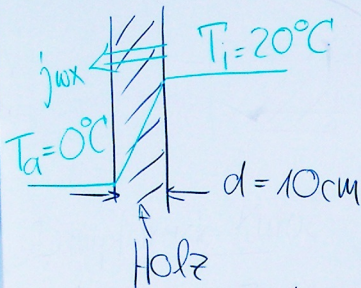 Ti = 20°C
jwx
Ta = 0°C
d = 10cm
Holz